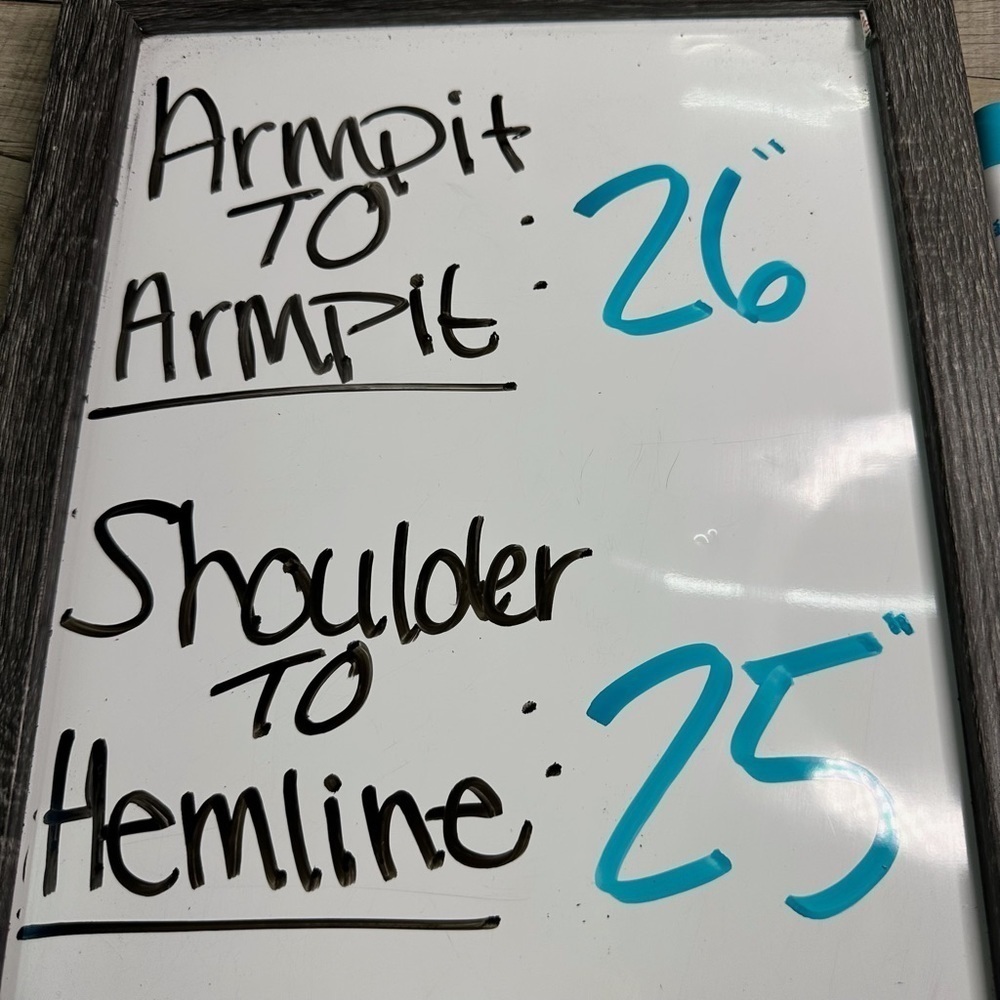 Armpit
TO
Armpit : 26"
Shoulder
TO
Hemline : 25"